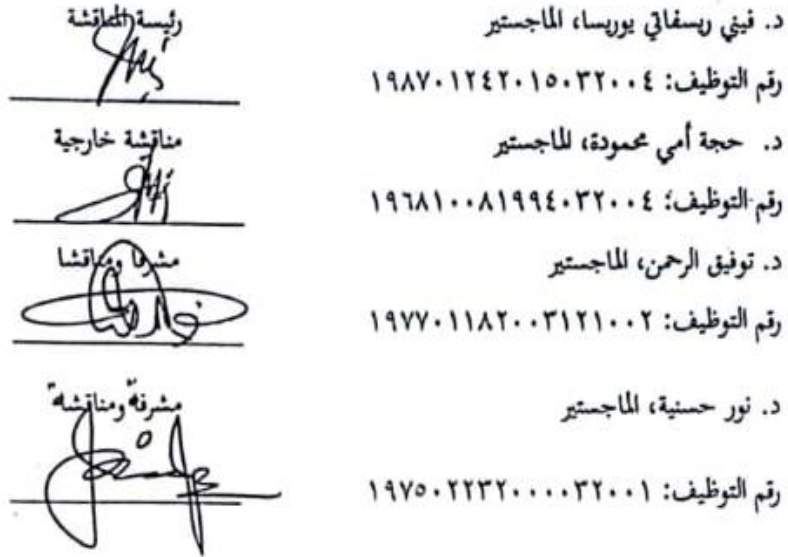 د. فيني ريسفاتي يوريسا، الماجستير
رئيسة المناقشة
رقم التوظيف: ١٩٨٧٠١٢٤٢٠١٥٠٣٢٠٠٤
د. حجة أمي محمودة، الماجستير
مناقشة خارجية
رقم التوظيف: ١٩٦٨١٠٠٨١٩٩٤٠٣٢٠٠٤
د. توفيق الرحمن، الماجستير
مشرفا ومناقشا
رقم التوظيف: ١٩٧٧٠١١٨٢٠٠٣١٢١٠٠٢
د. نور حسنية، الماجستير
مشرفة ومناقشة
رقم التوظيف: ١٩٧٥٠٢٢٣٢٠٠٠٠٣٢٠٠١